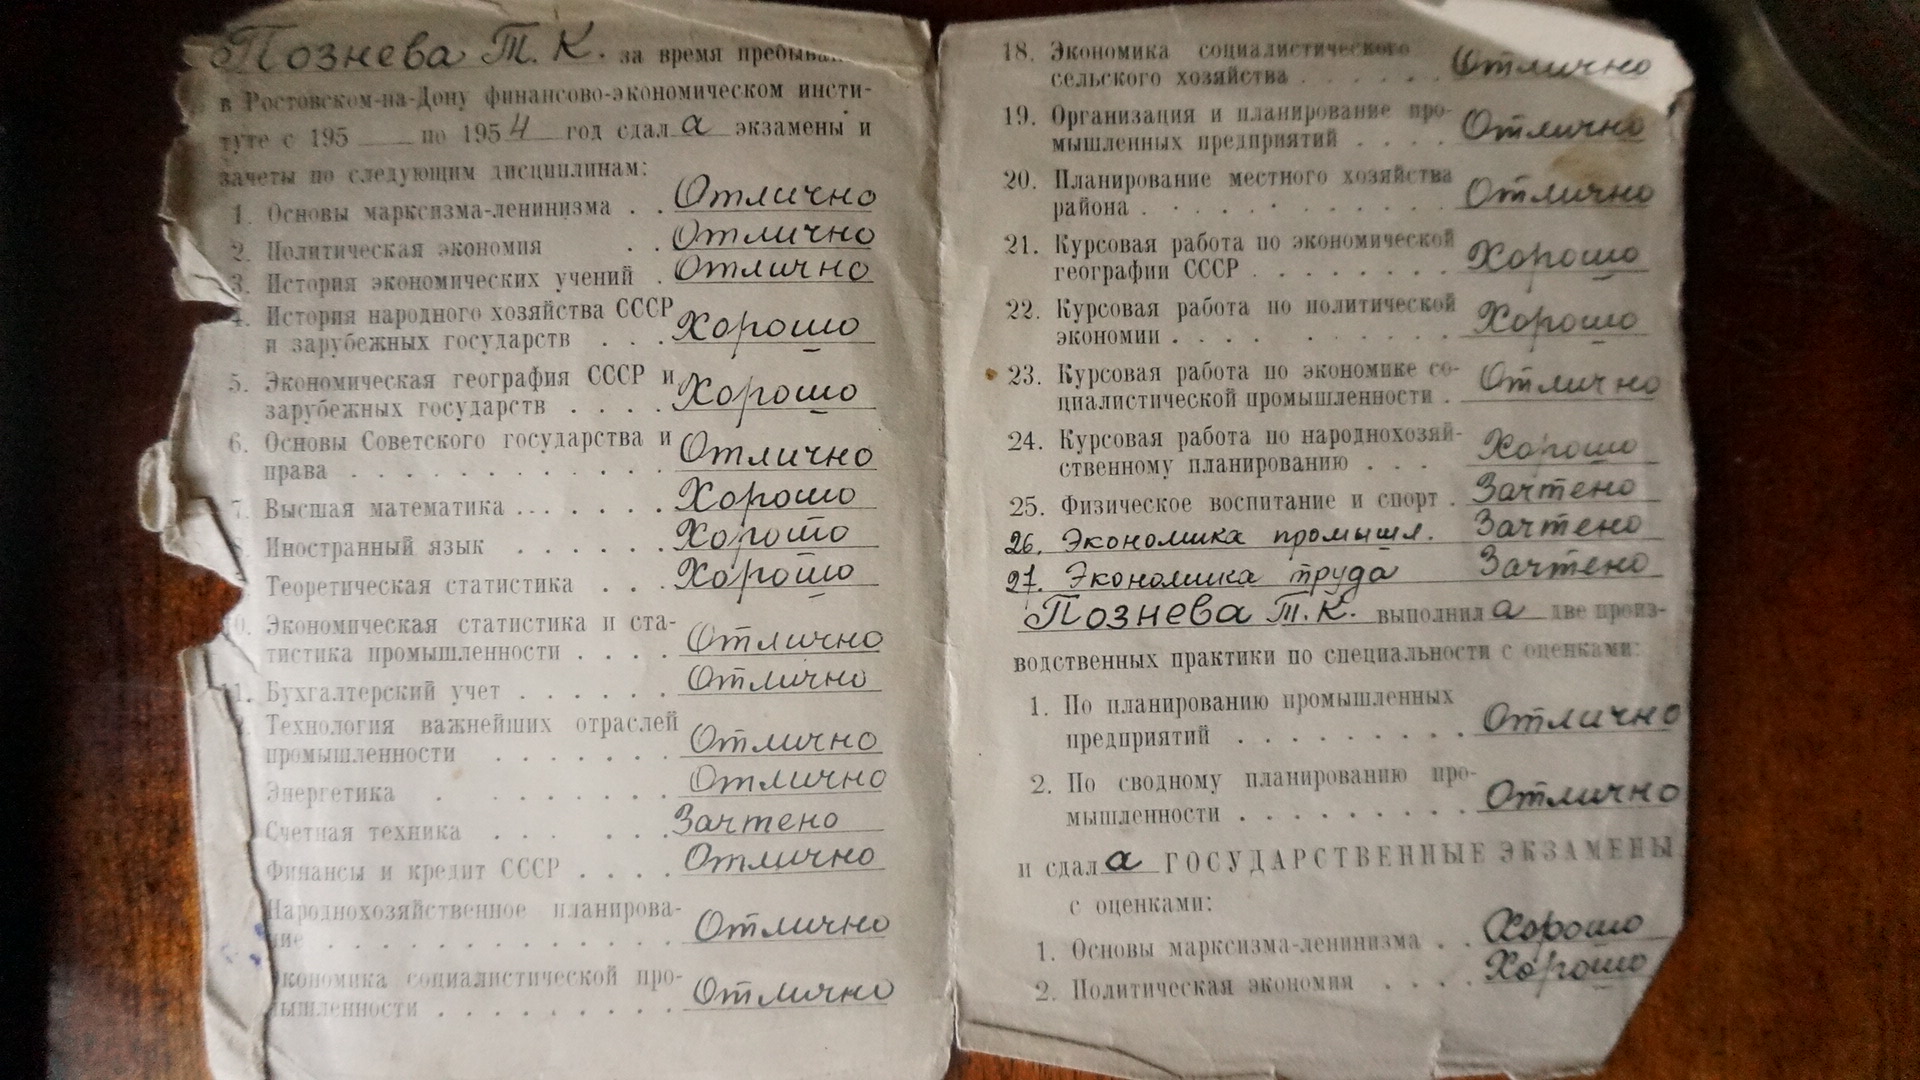 Познева Т. К. за время пребыва
в Ростовском-на-Дону финансово-экономическом инсти-
туте с 195 по 1954 год сдала экзамены и
зачеты по следующим дисциплинам:
1. Основы марксизма-ленинизма . . Отлично
2. Политическая экономия . . Отлично
3. История экономических учений . Отлично
4. История народного хозяйства СССР
и зарубежных государств . . . Хорошо
5. Экономическая география СССР и
зарубежных государств . . . . Хорошо
6. Основы Советского государства и
права . . . . . . . . . . . . Отлично
7. Высшая математика . . . . . . Хорошо
8. Иностранный язык . . . . . . Хорошо
Теоретическая статистика . . . Хорошо
10. Экономическая статистика и ста-
тистика промышленности . . . . Отлично
11. Бухгалтерский учет . . . . . . Отлично
Технология важнейших отраслей
промышленности . . . . . . . Отлично
Энергетика . . . . . . . Отлично
Счетная техника . . . . . Зачтено
Финансы и кредит СССР . . . . Отлично
Народнохозяйственное планирова-
ние . . . . . . . . . . . . . Отлично
Экономика социалистической про-
мышленности . . . . . . . . . Отлично
18. Экономика социалистического
сельского хозяйства . . . . . . Отлично
19. Организация и планирование про-
мышленных предприятий . . . . Отлично
20. Планирование местного хозяйства
района . . . . . . . . . . . . Отлично
21. Курсовая работа по экономической
географии СССР . . . . . . . . Хорошо
22. Курсовая работа по политической
экономии . . . . . . . . . . Хорошо
23. Курсовая работа по экономике со-
циалистической промышленности . Отлично
24. Курсовая работа по народнохозяй-
ственному планированию . . . Хорошо
25. Физическое воспитание и спорт . Зачтено
26. Экономика промышл. Зачтено
27. Экономика труда Зачтено
Познева Т. К. выполнила две произ-
водственных практики по специальности с оценками:
1. По планированию промышленных
предприятий . . . . . . . . . Отлично
2. По сводному планированию про-
мышленности . . . . . . . . . Отлично
и сдала ГОСУДАРСТВЕННЫЕ ЭКЗАМЕНЫ
с оценками:
1. Основы марксизма-ленинизма . . Хорошо
2. Политическая экономия . . . . Хорошо